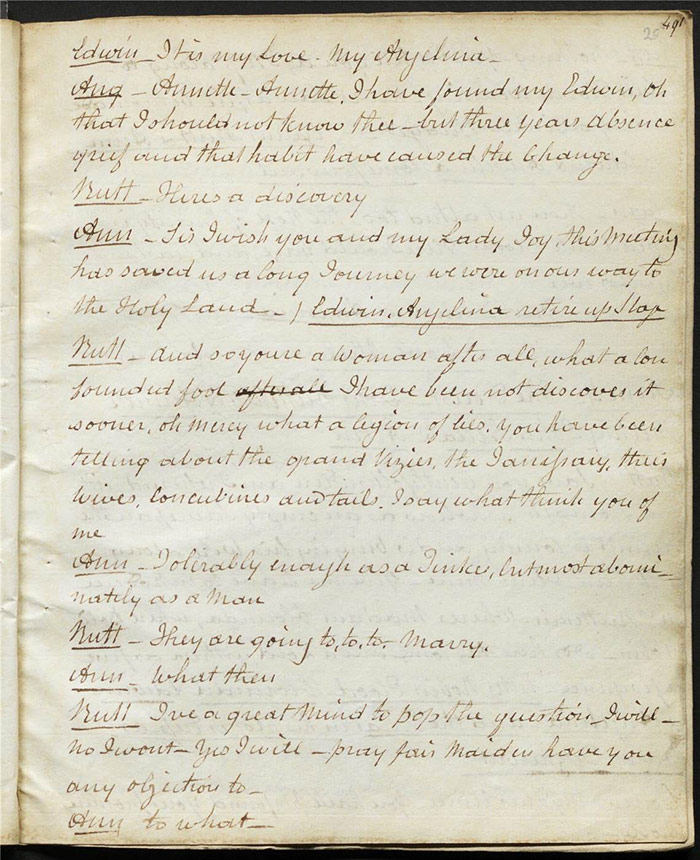 20 491
Edwin - It is my Love. My Angelina -
Ang - Annette - Annette, I have found my Edwin, Oh
that I should not know thee - but three years absence
grief and that habit have caused the Change.
Rutt - Heres a discovery
Ann - Sir I wish you and my Lady Joy, this Meeting
has saved us a long Journey we were on our way to
the Holy Land - ) Edwin, Angelina retire up Stage
Rutt - And so youre a Woman after all, what a Con
founded fool after all I have been not discover it
sooner, oh mercy what a legion of lies, you have been
telling about the grand Vizier, the Janissary, their
Wives, Concubines and tails. I say what think you of
me
Ann - Tolerably enough as a Tinker, but most abomi-
nately as a Man
Rutt - They are going to, to, to - Marry.
Ann - What then
Rutt I've a great Mind to pop the question - I will -
no I wont - Yes I will - pray fair Maiden have you
any objection to -
Ann to what -